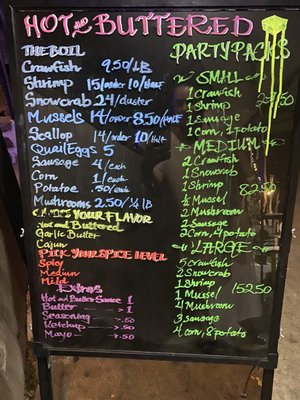 HOT and BUTTERED
THE BOIL
Crawfish 9.50/LB
Shrimp 15/order 10/Half
Snowcrab 24/cluster
Mussels 14/order 8.50/Half
Scallop 14/order 10/Half
Quail Eggs 5
Sausage 4/each
Corn 1/each
Potatoe .50/each
Mushrooms 2.50/¼ LB
YOUR FLAVOR
Hot and Buttered
Garlic Butter
Cajun
PICK YOUR SPICE LEVEL
Spicy
Medium
Mild
Extras
Hot and Butter Sauce 1
Butter 1
Seasoning .50
Ketchup .50
Mayo .50
PARTY PACKS
SMALL
1 Crawfish
1 Shrimp
1 Sausage
1 Corn, 1 potato
MEDIUM
2 Crawfish
1 Snowcrab
1 Shrimp
82.50
½ Mussel
2 Mushroom
2 Sausage
LARGE
5 Crawfish
2 Snowcrab
1 Shrimp
1 Mussel
152.50
4 Mushroom
3 Sausage
4 corn, 8 potato